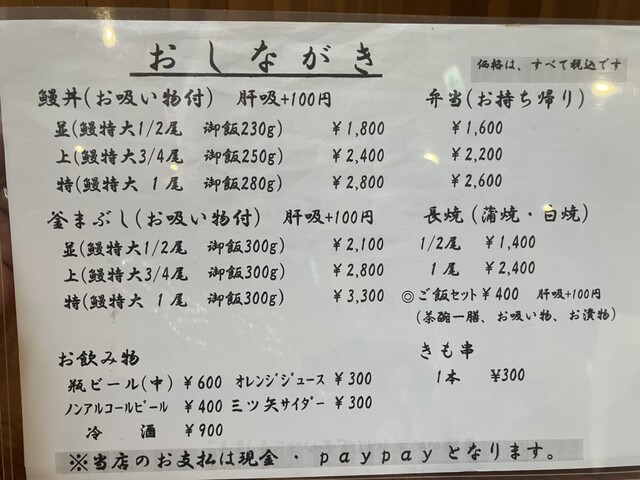 おしながき
価格は、すべて税込です
鰻丼(お吸い物付) 肝吸+100円
並(鰻特大1/2尾 御飯230g) ¥1,800
上(鰻特大3/4尾 御飯250g) ¥2,400
特(鰻特大 1尾 御飯280g) ¥2,800
弁当(お持ち帰り)
¥1,600
¥2,200
¥2,600
釜まぶし(お吸い物付) 肝吸+100円
並(鰻特大1/2尾 御飯300g) ¥2,100
上(鰻特大3/4尾 御飯300g) ¥2,800
特(鰻特大 1尾 御飯300g) ¥3,300
長焼(蒲焼・白焼)
1/2尾 ¥1,400
1尾 ¥2,400
◎ご飯セット¥400 肝吸+100円
(茶碗一膳、お吸い物、お漬物)
お飲み物
瓶ビール(中) ¥600 オレンジジュース ¥300
ノンアルコールビール ¥400 三ツ矢サイダー ¥300
冷 酒 ¥900
きも串
1本 ¥300
※当店のお支払は現金・paypayとなります。